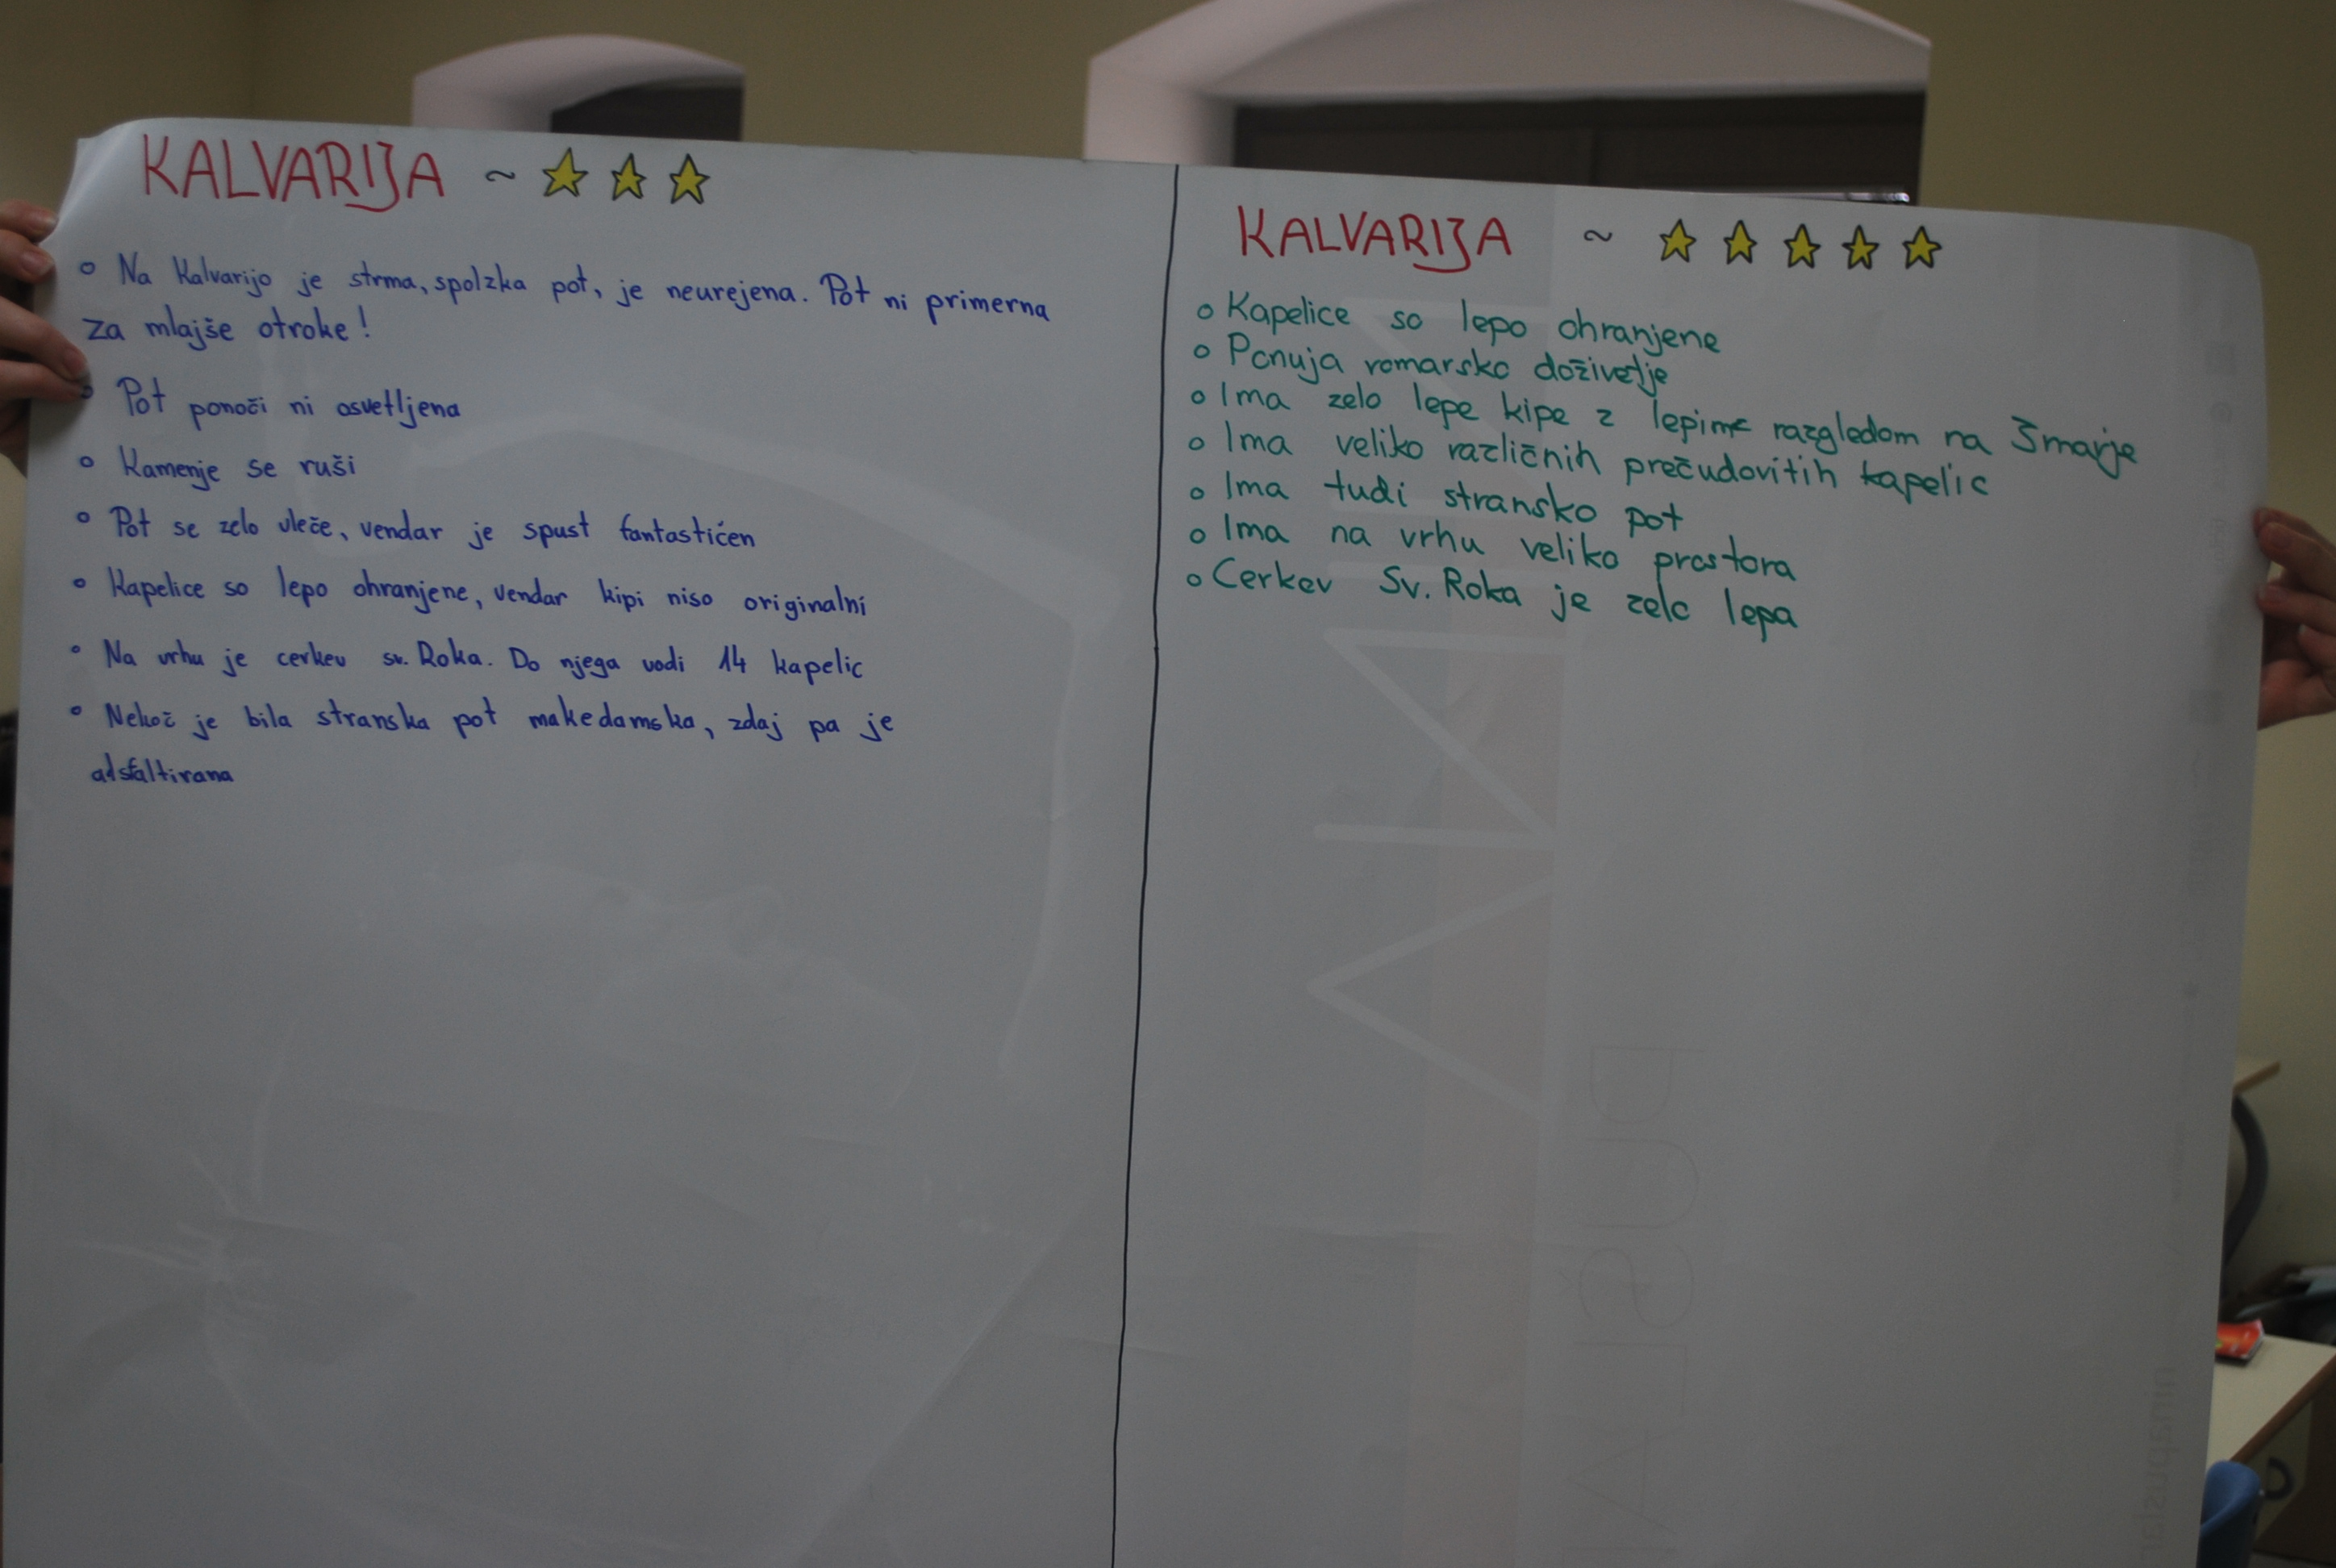 KALVARIJA ~ ☆ ☆ ☆
o Na Kalvarijo je strma, spolzka pot, je neurejena. Pot ni primerna
za mlajše otroke!
o Pot ponoči ni osvetljena
o Kamenje se ruši
o Pot se zelo vleče, vendar je spust fantastićen
o Kapelice so lepo ohranjene, vendar kipi niso originalni
o Na vrhu je cerkev sv. Roka. Do njega vodi 14 kapelic
o Nekoč je bila stranska pot makedamska, zdaj pa je
KALVARIJA ~ ☆ ☆ ☆ ☆ ☆
o Kapelice so lepo ohranjene
o Ponuja romarsko doživetje
o Ima zelo lepe kipe z lepim razgledom na Šmarje
o Ima veliko različnih prečudovitih kapelic
o Ima tudi stransko pot
o Ima na vrhu veliko prostora
o Cerkev Sv. Roka je zelo lepa